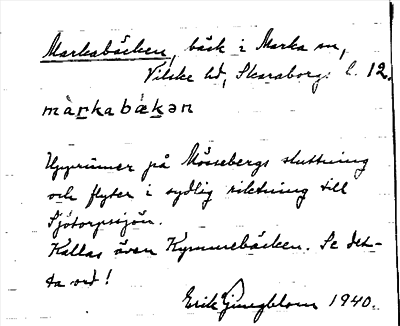 Markabäcken, bäck i Marka sn,
Vilske hd, Skaraborgs l. 12.
màrkabækən
Upprinner på Mössebergs sluttning
och flyter i sydlig riktning till
Sjötorpssjön.
Kallas även Kymmebäcken. Se det-
ta ord!
Erik Ljungblom 1940.